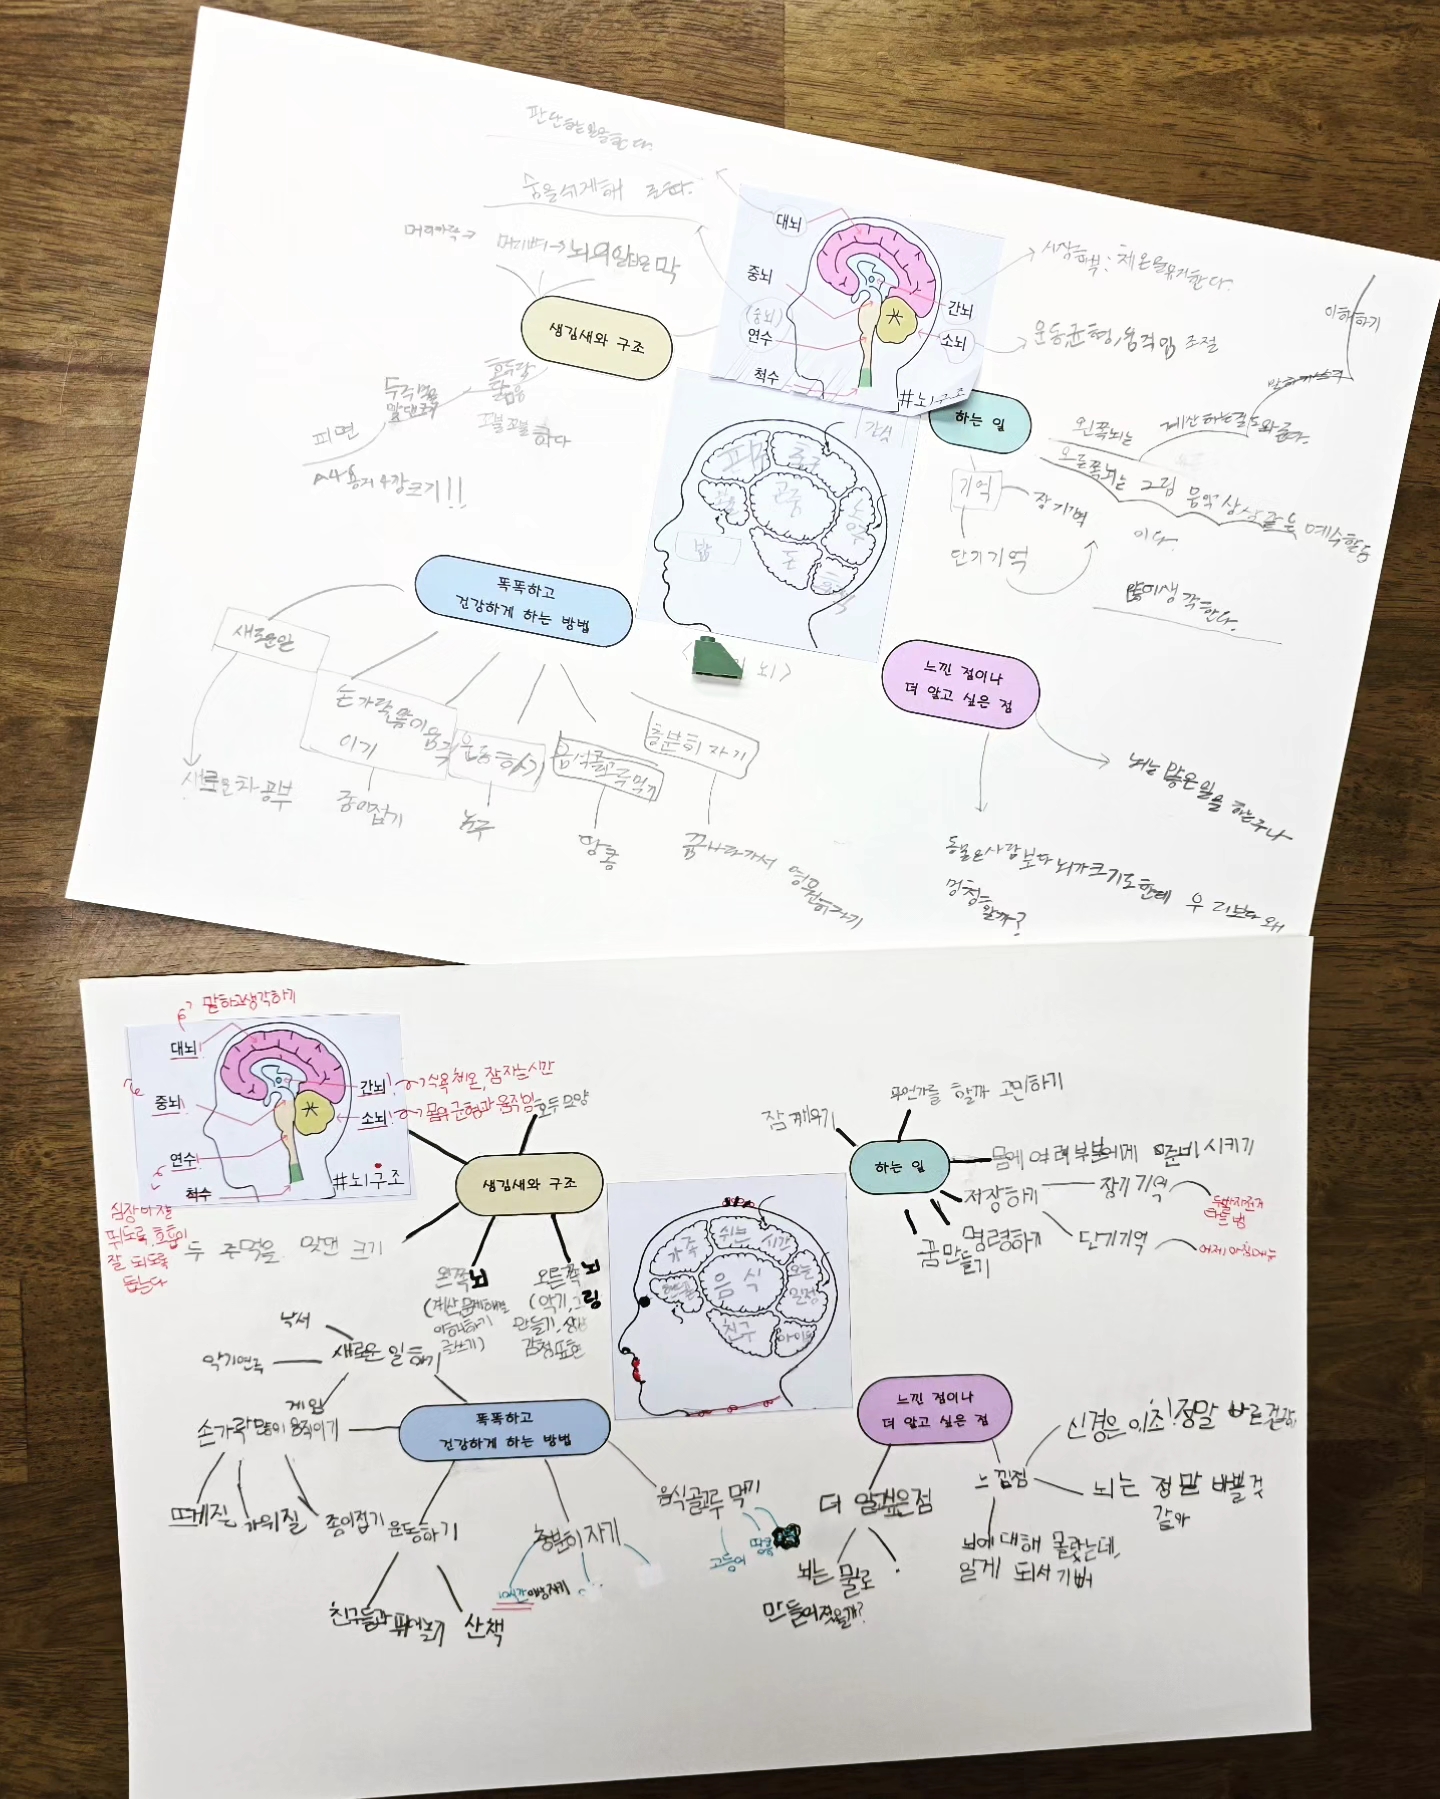 판단하는 일을 한다.
숨을 쉬게해 준다.
머리뼈→뇌의일 막
생김새와 구조
대뇌
중뇌
(중뇌)
연수
척수
간뇌
소뇌
#뇌구조
체온을유지한다.
운동균형, 움직임 조절
이해하기
두주먹을
맞댄크기
호두랑
닮음
꼬불꼬불 하다
피면
신용지4장크기!!
하는 일
기억
장기기억
단기기억
왼쪽뇌는
계산하는걸 도와준다.
오른쪽뇌는 그림 음악 상상 예술활동
이다.
많이생각한다.
간식
피자
친구
공주
돈
밥
뇌>
똑똑하고
건강하게 하는 방법
새로운일
새로운차 공부
손가락많이움직
이기
종이접기
운동하기
농구
음식골고루먹기
땅콩
충분히 자기
꿈나라가서 영원히자기
느낀 점이나
더 알고 싶은 점
뇌는 많은일을 하는구나
동물은사람보다 뇌가크기도한데 우리보다 왜
멍청할까?
말하고생각하기
대뇌
중뇌
연수
척수
간뇌
식욕 체온, 잠자는시간
소뇌
몸의 균형과 움직임
#뇌구조
심장이 잘
뛰도록, 호흡이
잘 되도록
돕는다
호두모양
생김새와 구조
두 주먹을 맞댄 크기
왼쪽뇌
(계산, 문제해결
이해하기
글쓰기)
오른쪽뇌
(악기, 그림
만들기, 상상
감정표현
잠 깨우기
무언가를 할까 고민하기
하는 일
몸에 여러부분에게 준비 시키기
저장하기
장기기억
두발자전거
타는 법
단기기억
어제 아침메뉴
명령하기
꿈만들기
가족
쉬는
시간
음식
오늘
일정
친구
아이돌
낙서
악기연주
새로운 일 하기
게임
손가락 많이 움직이기
뜨개질
가위질
종이접기
똑똑하고
건강하게 하는 방법
운동하기
친구들과 뛰어놀기
산책
충분히 자기
10시간 이상자기
음식골고루 먹기
고등어
땅콩
느낀 점이나
더 알고 싶은 점
더 알고싶은점
뇌는 뭘로
만들어졌을까?
느낌점
신경은 0.1초! 정말 빠른걸
뇌는 정말 바쁠 것
같아
뇌에 대해 몰랐는데,
알게 되서 기뻐